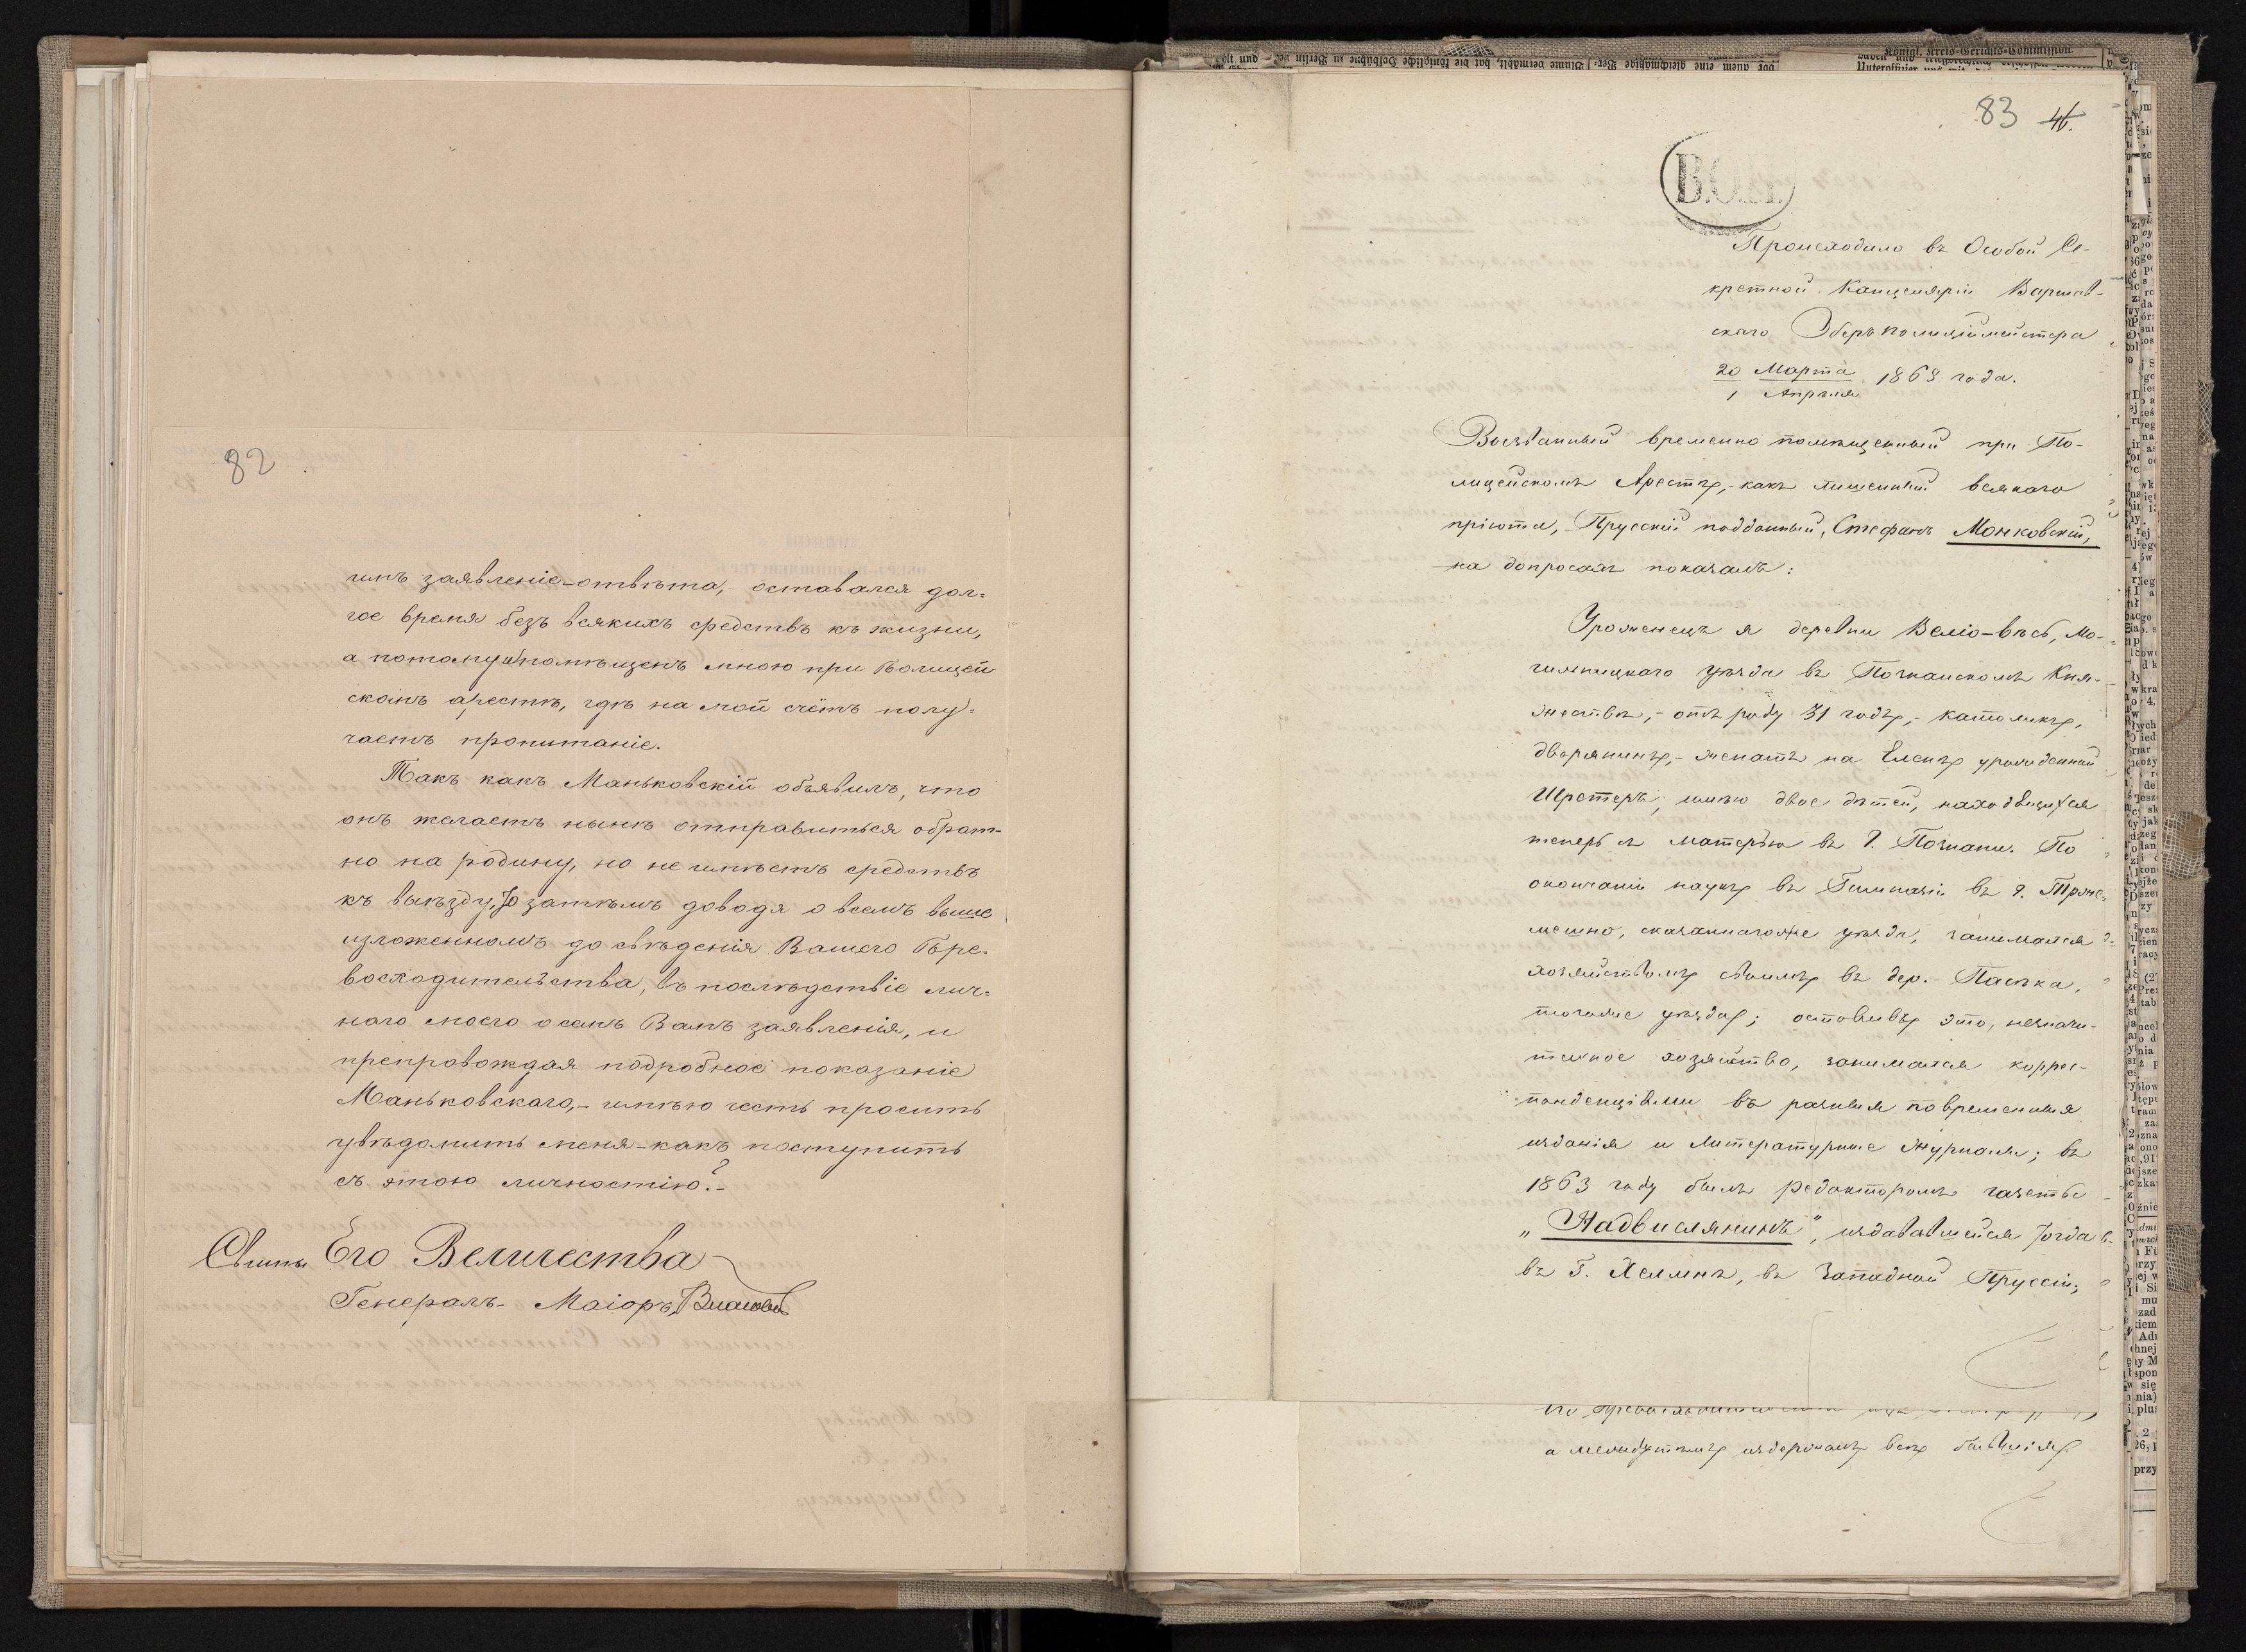 82
имъ заявленіе-отвѣта, оставался дол=
гое время безъ всякихъ средствъ къ жизни,
а потому и помѣщенъ мною при Полицей
скомъ арестѣ, гдѣ на мой счётъ полу=
чаетъ пропитаніе.
Такъ какъ Маньковскій объявилъ, что
онъ желаетъ нынѣ отправиться обрат-
но на родину, но не имѣетъ средствъ
къ выѣзду, то затѣмъ доводя о всемъ выше
изложенномъ до свѣдѣнія Вашего Пре-
восходительства, въ послѣдствіе лич=
наго моего о семъ Вамъ заявленія, и
препровождая подробное показаніе
Маньковскаго,- имѣю честь просить
увѣдомить меня-какъ поступить
съ этою личностію?-
Свиты Его Величества
Генералъ-Маіоръ
83 46.
Происходило въ Особой Се-
кретной Канцеляріи Варшав-
скаго Оберъ полиціймейстера
20 Марта 186 года.
1 Апрѣля
временно помѣщенный при По-
лицейскомъ Арестѣ,- какъ лишенный всякаго
пріюта, Прусскій подданный, Стефанъ Монковскій,
на допросахъ показалъ:
Уроженецъ я деревни Мо-
гильницкаго уѣзда въ Познанскомъ Кня-
жествѣ,- отъ роду 31 годъ,- католикъ,
дворянинъ,- женатъ на Еленѣ урожденной
имѣю двое дѣтей, находящихся
теперь съ матерью въ г. Познани. По
окончаніи наукъ въ Гимназіи въ г. Трже-
мешно, сказаннагоже уѣзда, занимался
хозяйствомъ своимъ въ дер. Пасѣка,
тогоже уѣзда; оставивъ это, незначи-
тельное хозяйство, занимался коррес-
понденціями въ разныя повременныя
изданія и Литературные Журналы; въ
1863 году былъ редакторомъ газеты
„Надвислянинъ", издававшейся тогда
въ Г. Хелмнѣ, въ Западной Пруссіи;
а между тѣмъ издержалъ всѣ бывшія